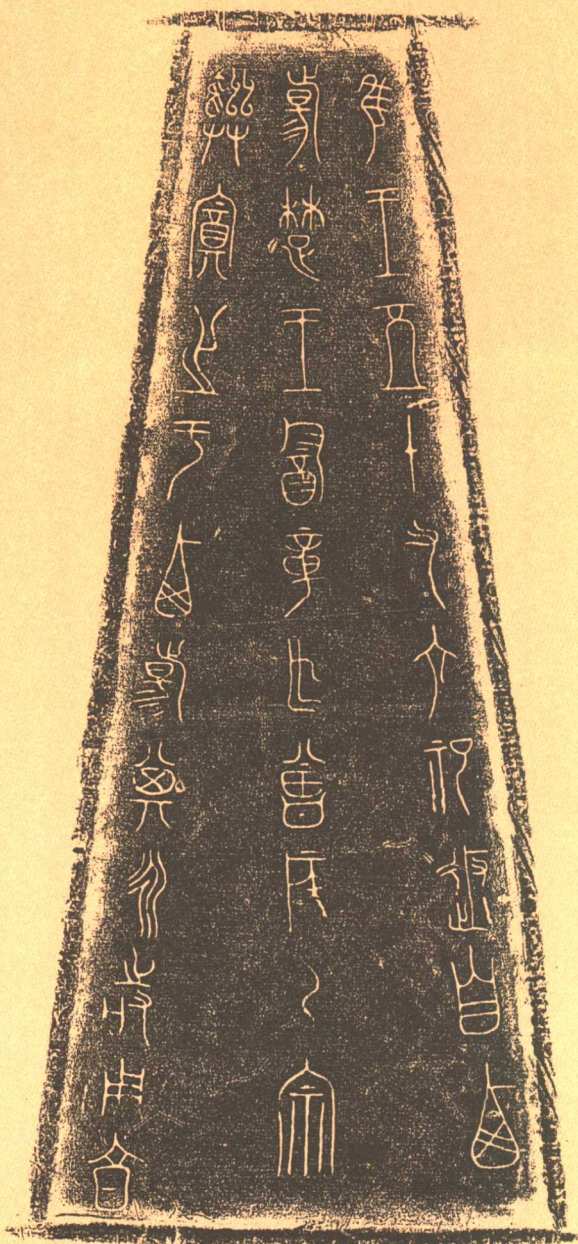 隹王五十又六祀返自西
昜楚王酓章乍曾侯乙宗
彝寘之于西昜其永持用享